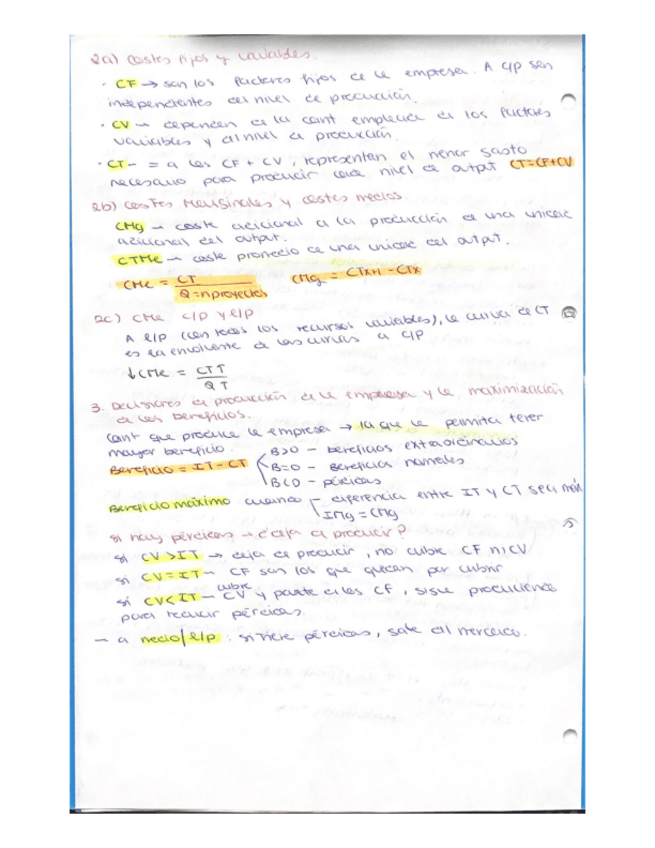 2a) Costes fijos y variables.
· CF → son los factores fijos de la empresa. A c/p son
independientes del nivel de producción.
· CV → dependen de la cant empleada de los factores
variables y del nivel de producción.
· CT → = a los CF + CV, representan el menor gasto
necesario para producir cada nivel de output CT=CF+CV
2b) Costes Marginales y costes medios.
CMg → coste adicional a la producción de una unidad
adicional del output.
CTMe → coste promedio de una unidad del output.
CMe = CT / Q=nproyectos CMg = CTx+1 - CTx
2c) CMe c/p y l/p
A l/p (con todos los recursos variables), la curva de CT
es la envolvente de las curvas a c/p
↓CMe = CTT / QT
3. Decisiones de producción de la empresa y la maximización
de los beneficios.
Cant que produce la empresa → la que le permita tener
mayor beneficio.
B>0 - beneficios extraordinarios
Beneficio = IT - CT B=0 - beneficios normales
B<0 - pérdidas
Beneficio máximo cuando - diferencia entre IT y CT sea máx
IMg = CMg
Si hay pérdidas → ¿deja de producir?
si CV > IT → deja de producir, no cubre CF ni CV
si CV = IT - CF son los que quedan por cubrir
si CV < IT - cubre CV y parte de los CF, sigue produciendo
para reducir pérdidas.
- a medio/l/p : si tiene pérdidas, sale del mercado.